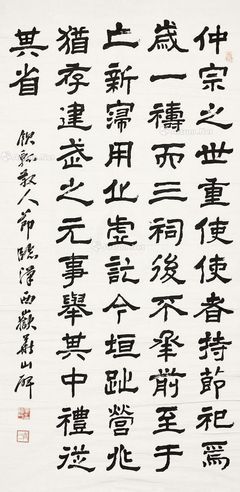 仲宗之世重使使者持節祀焉
歲一禱而三祠後不承前至于
亡新寖用丘虛訖今垣趾營兆
猶存建武之元事舉其中禮從
其省
瓢散人節臨漢西嶽華山碑